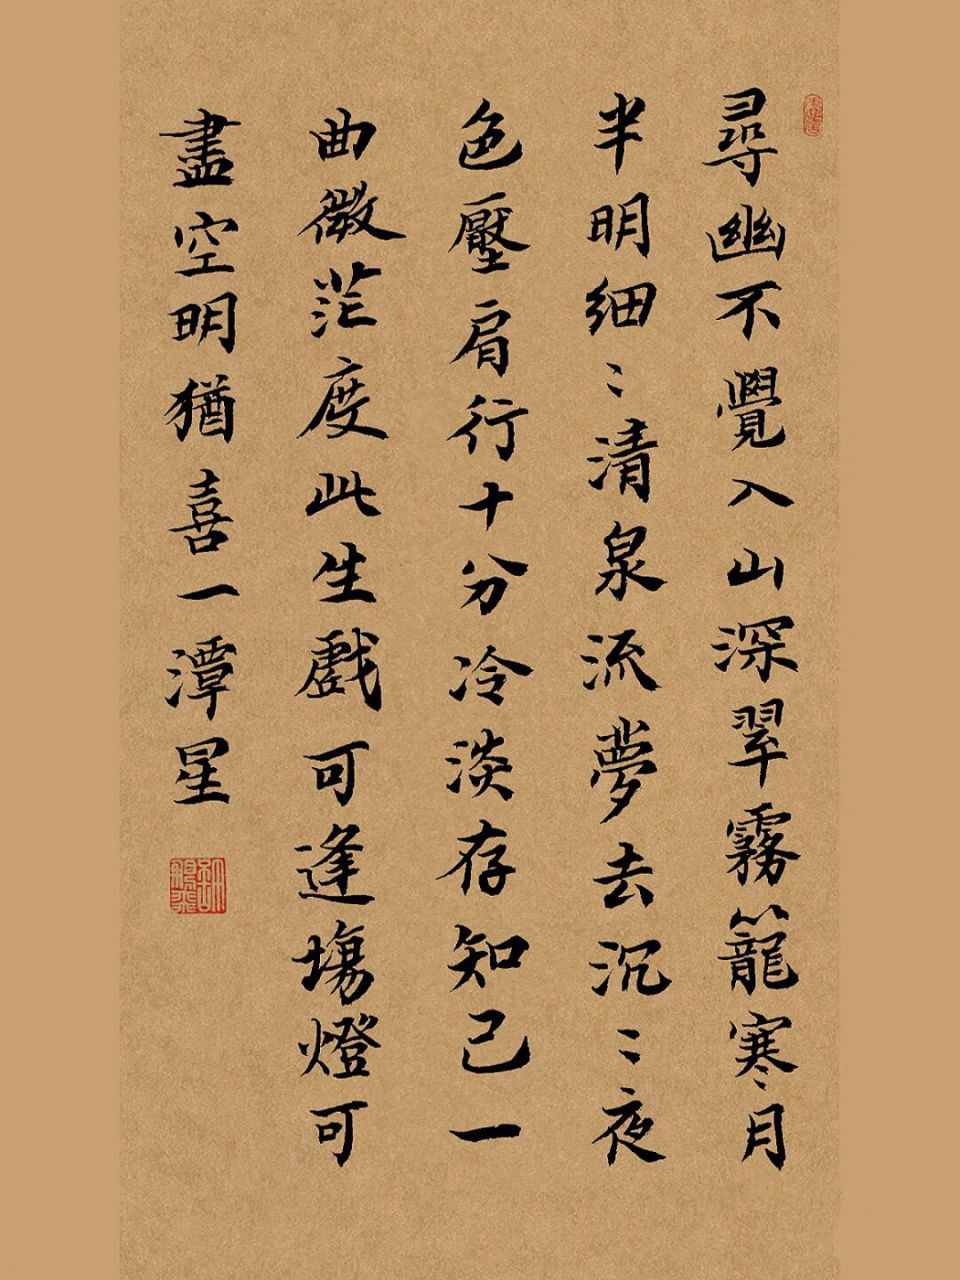 尋幽不覺入山深翠霧籠寒月
半明細〻清泉流夢去沉〻夜
色壓肩行十分冷淡存知己一
曲微茫度此生戲可逢場燈可
盡空明猶喜一潭星